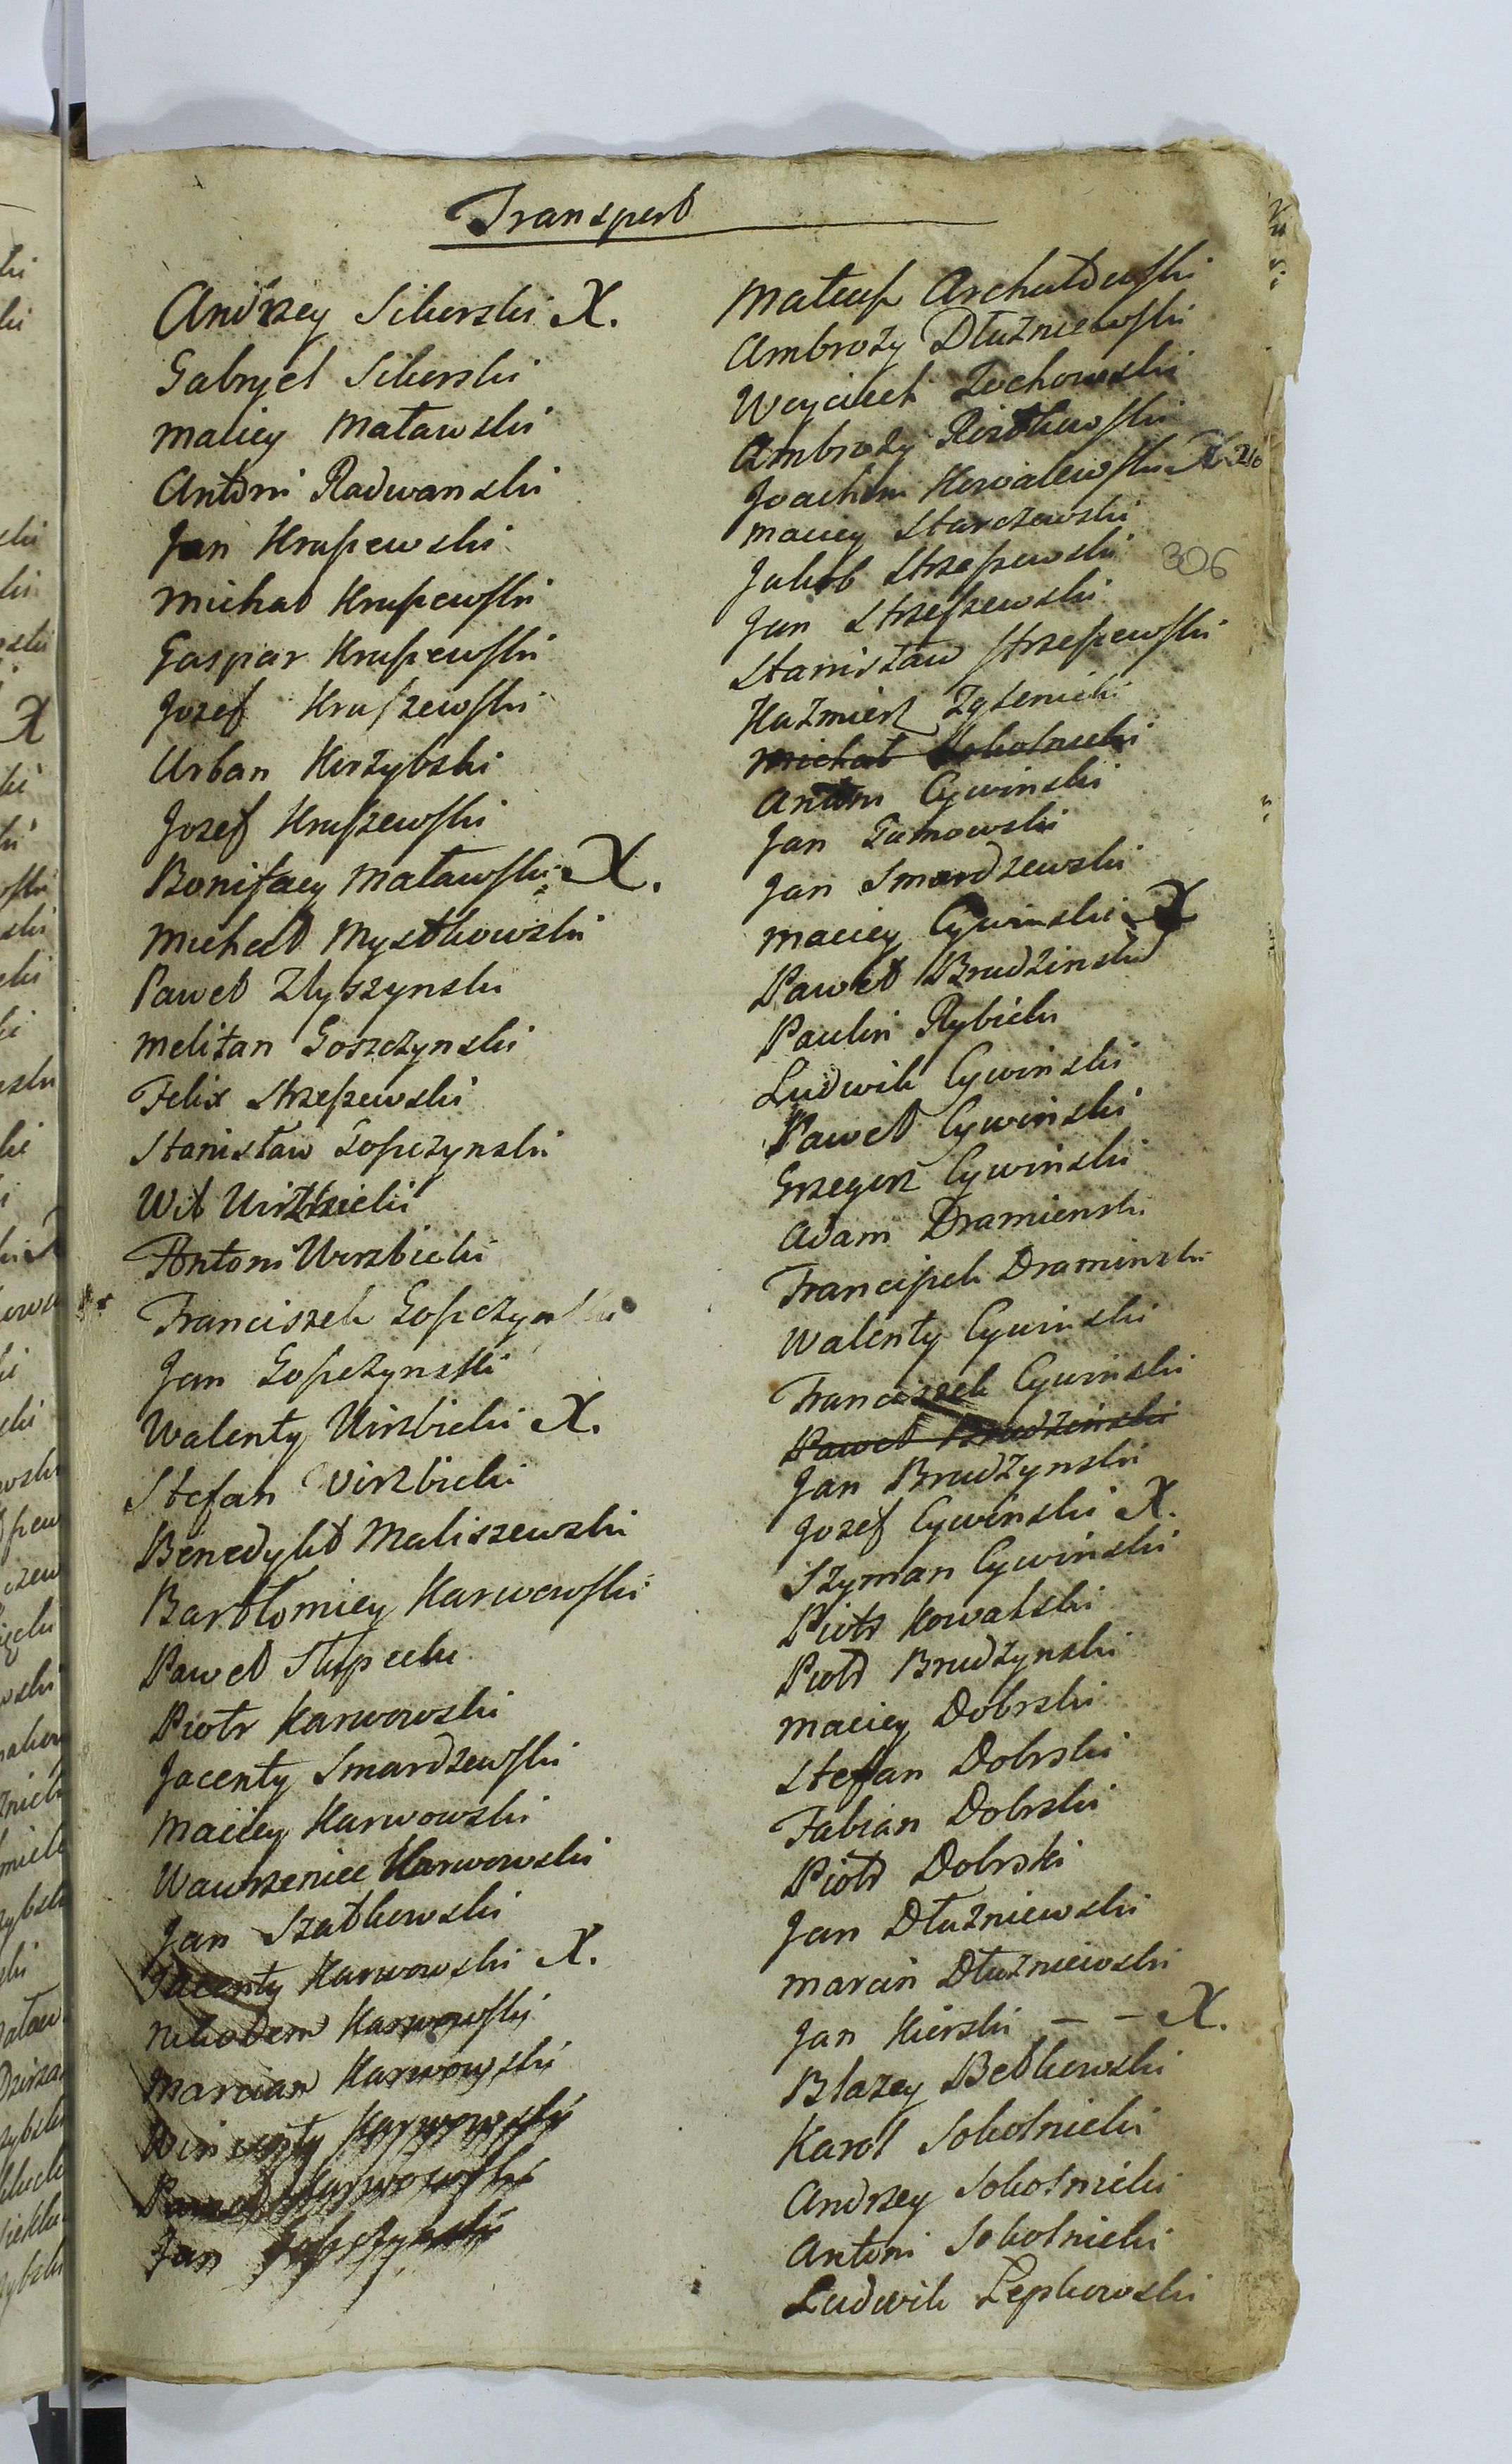 Transport
Andrzey Sikorski X.
Gabryel Sikorski
Maciey Matawski
Antoni Radwanski
Jan Kruszewski
Michał Kruszewski
Gaspar Kruszewski
Jozef Kruszewski
Urban Kirzybski
Jozef Kruszewski
Bonifacy Matawski X.
Michał Mystkowski
Paweł Zbyszynski
Melitan Goszczynski
Felix Strzeszewski
Stanisław Łopczynski
Wit Wirzbicki
Antoni Wirzbicki
Franciszek Łopczynski
Jan Łopczynski
Walenty Wirzbicki X.
Stefan Wirzbicki
Benedykt Maliszewski
Bartłomiey Karwowski
Paweł
Piotr Karwowski
Jacenty Smardzewski
Maciey Karwowski
Wawrzeniec Karwowski
Jan Szatkowski
Jacenty Karwowski X.
Nikodem Karwowski
Marcian Karwowski
Wincenty Karwowski
Paweł Karwowski
Jan Łopczynski
Mateusz
Ambroży Dłużniewski
Woyciech Żochowski
Ambroży
Joachim Kowalewski X 216
Maciey Starczewski
Jakob Strzeszewski 306
Jan Strzeszewski
Stanisław Strzeszewski
Kaźmierz
Michał Sokolnicki
Antoni Cywinski
Jan
Jan Smardzewski
Maciey Cywinski X
Paweł Brudzinski
Paulin Rybicki
Ludwik Cywinski
Paweł Cywinski
Grzegorz Cywinski
Adam Draminski
Franciszek Draminski
Walenty Cywinski
Franciszek Cywinski
Paweł Brudzinski
Jan Brudzynski
Jozef Cywinski X.
Szyman Cywinski
Piotr Kowalski
Piotr Brudzynski
Maciey Dobrski
Stefan Dobrski
Fabian Dobrski
Piotr Dobrski
Jan Dłużniewski
Marcin Dłużniewski
Jan Kierski - - X.
Błażey Bełkowski
Karol Sokolnicki
Andrzey Sokolnicki
Antoni Sokolnicki
Ludwik Łepkowski